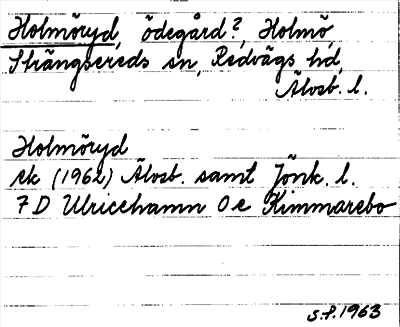 Holmöryd, ödegård?, Holmö,
Strängsereds sn, Redvägs hd,
Älvsb. l.
Holmöryd
ek (1962) Älvsb. samt Jönk. l.
7 D Ulricehamn 0 e Kimmarebo
S.F. 1963